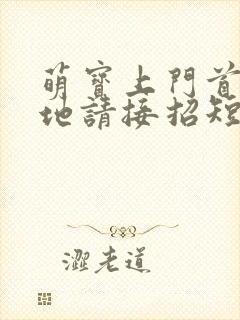 萌寶上門首
地請接招短
澀老道